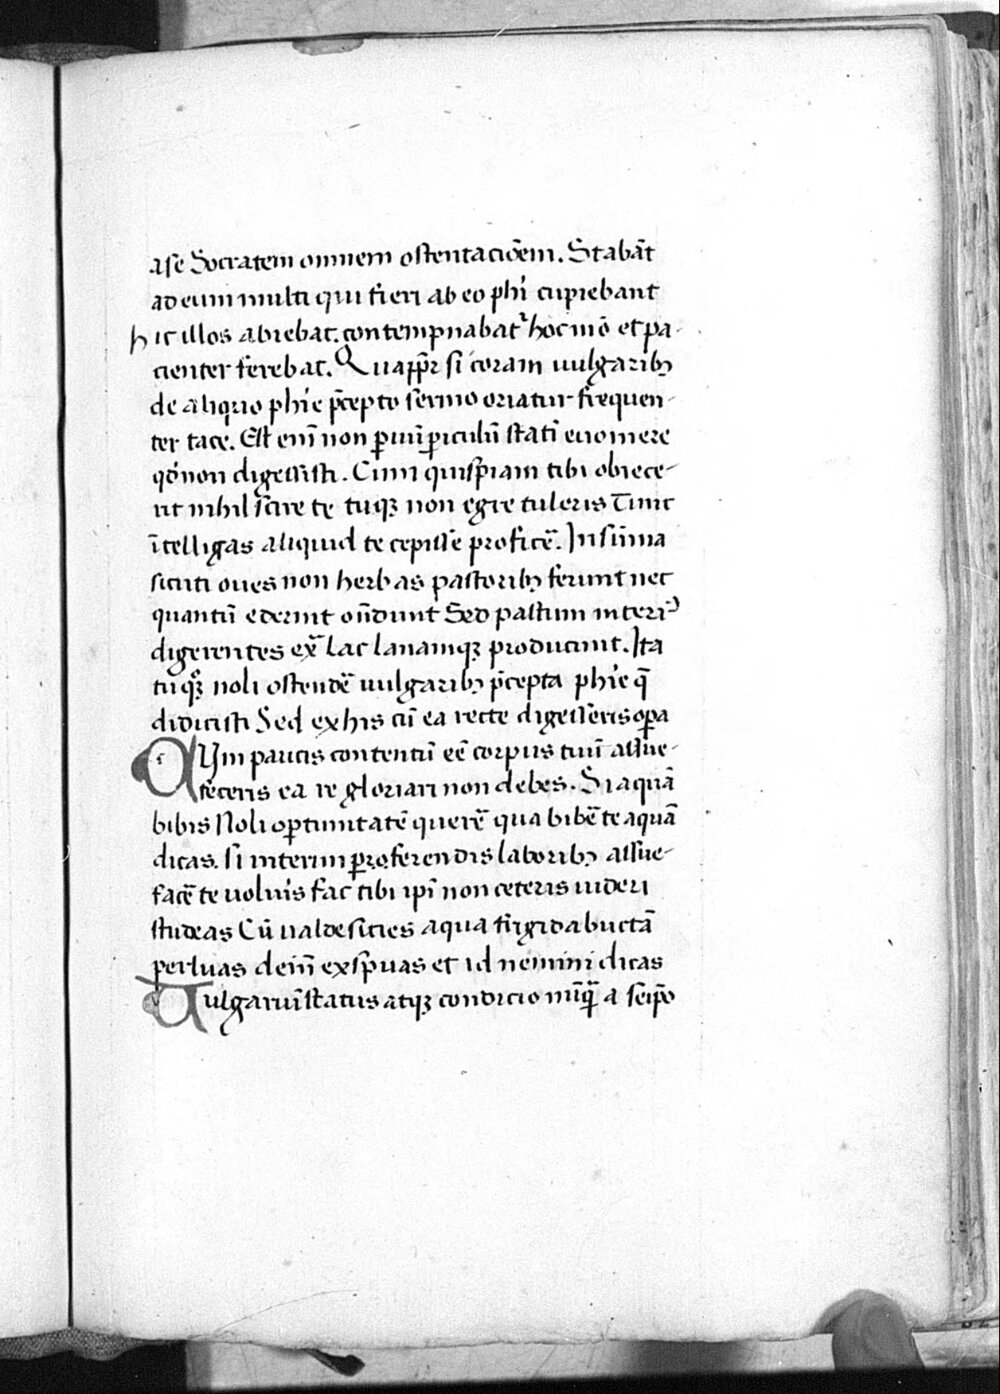 a se Socratem omnem ostentacio̅em. Staba̅t
ad eum multi qui fieri ab eo phi̅ cupiebant
hic illos abiebat. contempnabat᷑ hoc mo̅ et pa-
cienter ferebat. Quapp̅r si coram uulgaribꝫ
de aliquo phi̅e p̅cepto sermo oriatur frequen-
ter tace. Est eni̅ non ꝑuu̅ ꝑiculu̅ stati̅ euomere
qd̅ non digessisti. Cum quispiam tibi obiece-
rit nihil scire te tuqꝫ non egre tuleris Tunc
i̅telligas aliquid te cepisse profice̅. In su̅ma
sicuti oues non herbas pastoribꝫ ferunt nec
quantu̅ ederint on̅dunt Sed pastum interi᷑
digerentes ex̅ lac lanamqꝫ producunt. Ita
tu qꝫ noli ostende̅ uulgaribꝫ p̅cepta phi̅e q̅
didicisti Sed ex his cu̅ ea recte digesseris oꝑa
CUm paucis contentu̅ ee̅ corpus tuu̅ assue-
feceris ea re gloriari non debes. Si aqua̅
bibis Noli oꝑtunitate̅ quere̅ qua bibe̅ te aqua̅
dicas. si interim ꝑferendis laboribꝫ assue-
face̅ te uoluis fac tibi ipi̅ non ceteris uideri
studeas Cu̅ ualde sities aqua frigida bucta̅
perluas dein̅ exspuas et id nemini dicas
Uulgariu̅ status atqꝫ condicio nu̅q̅ a seipo̅